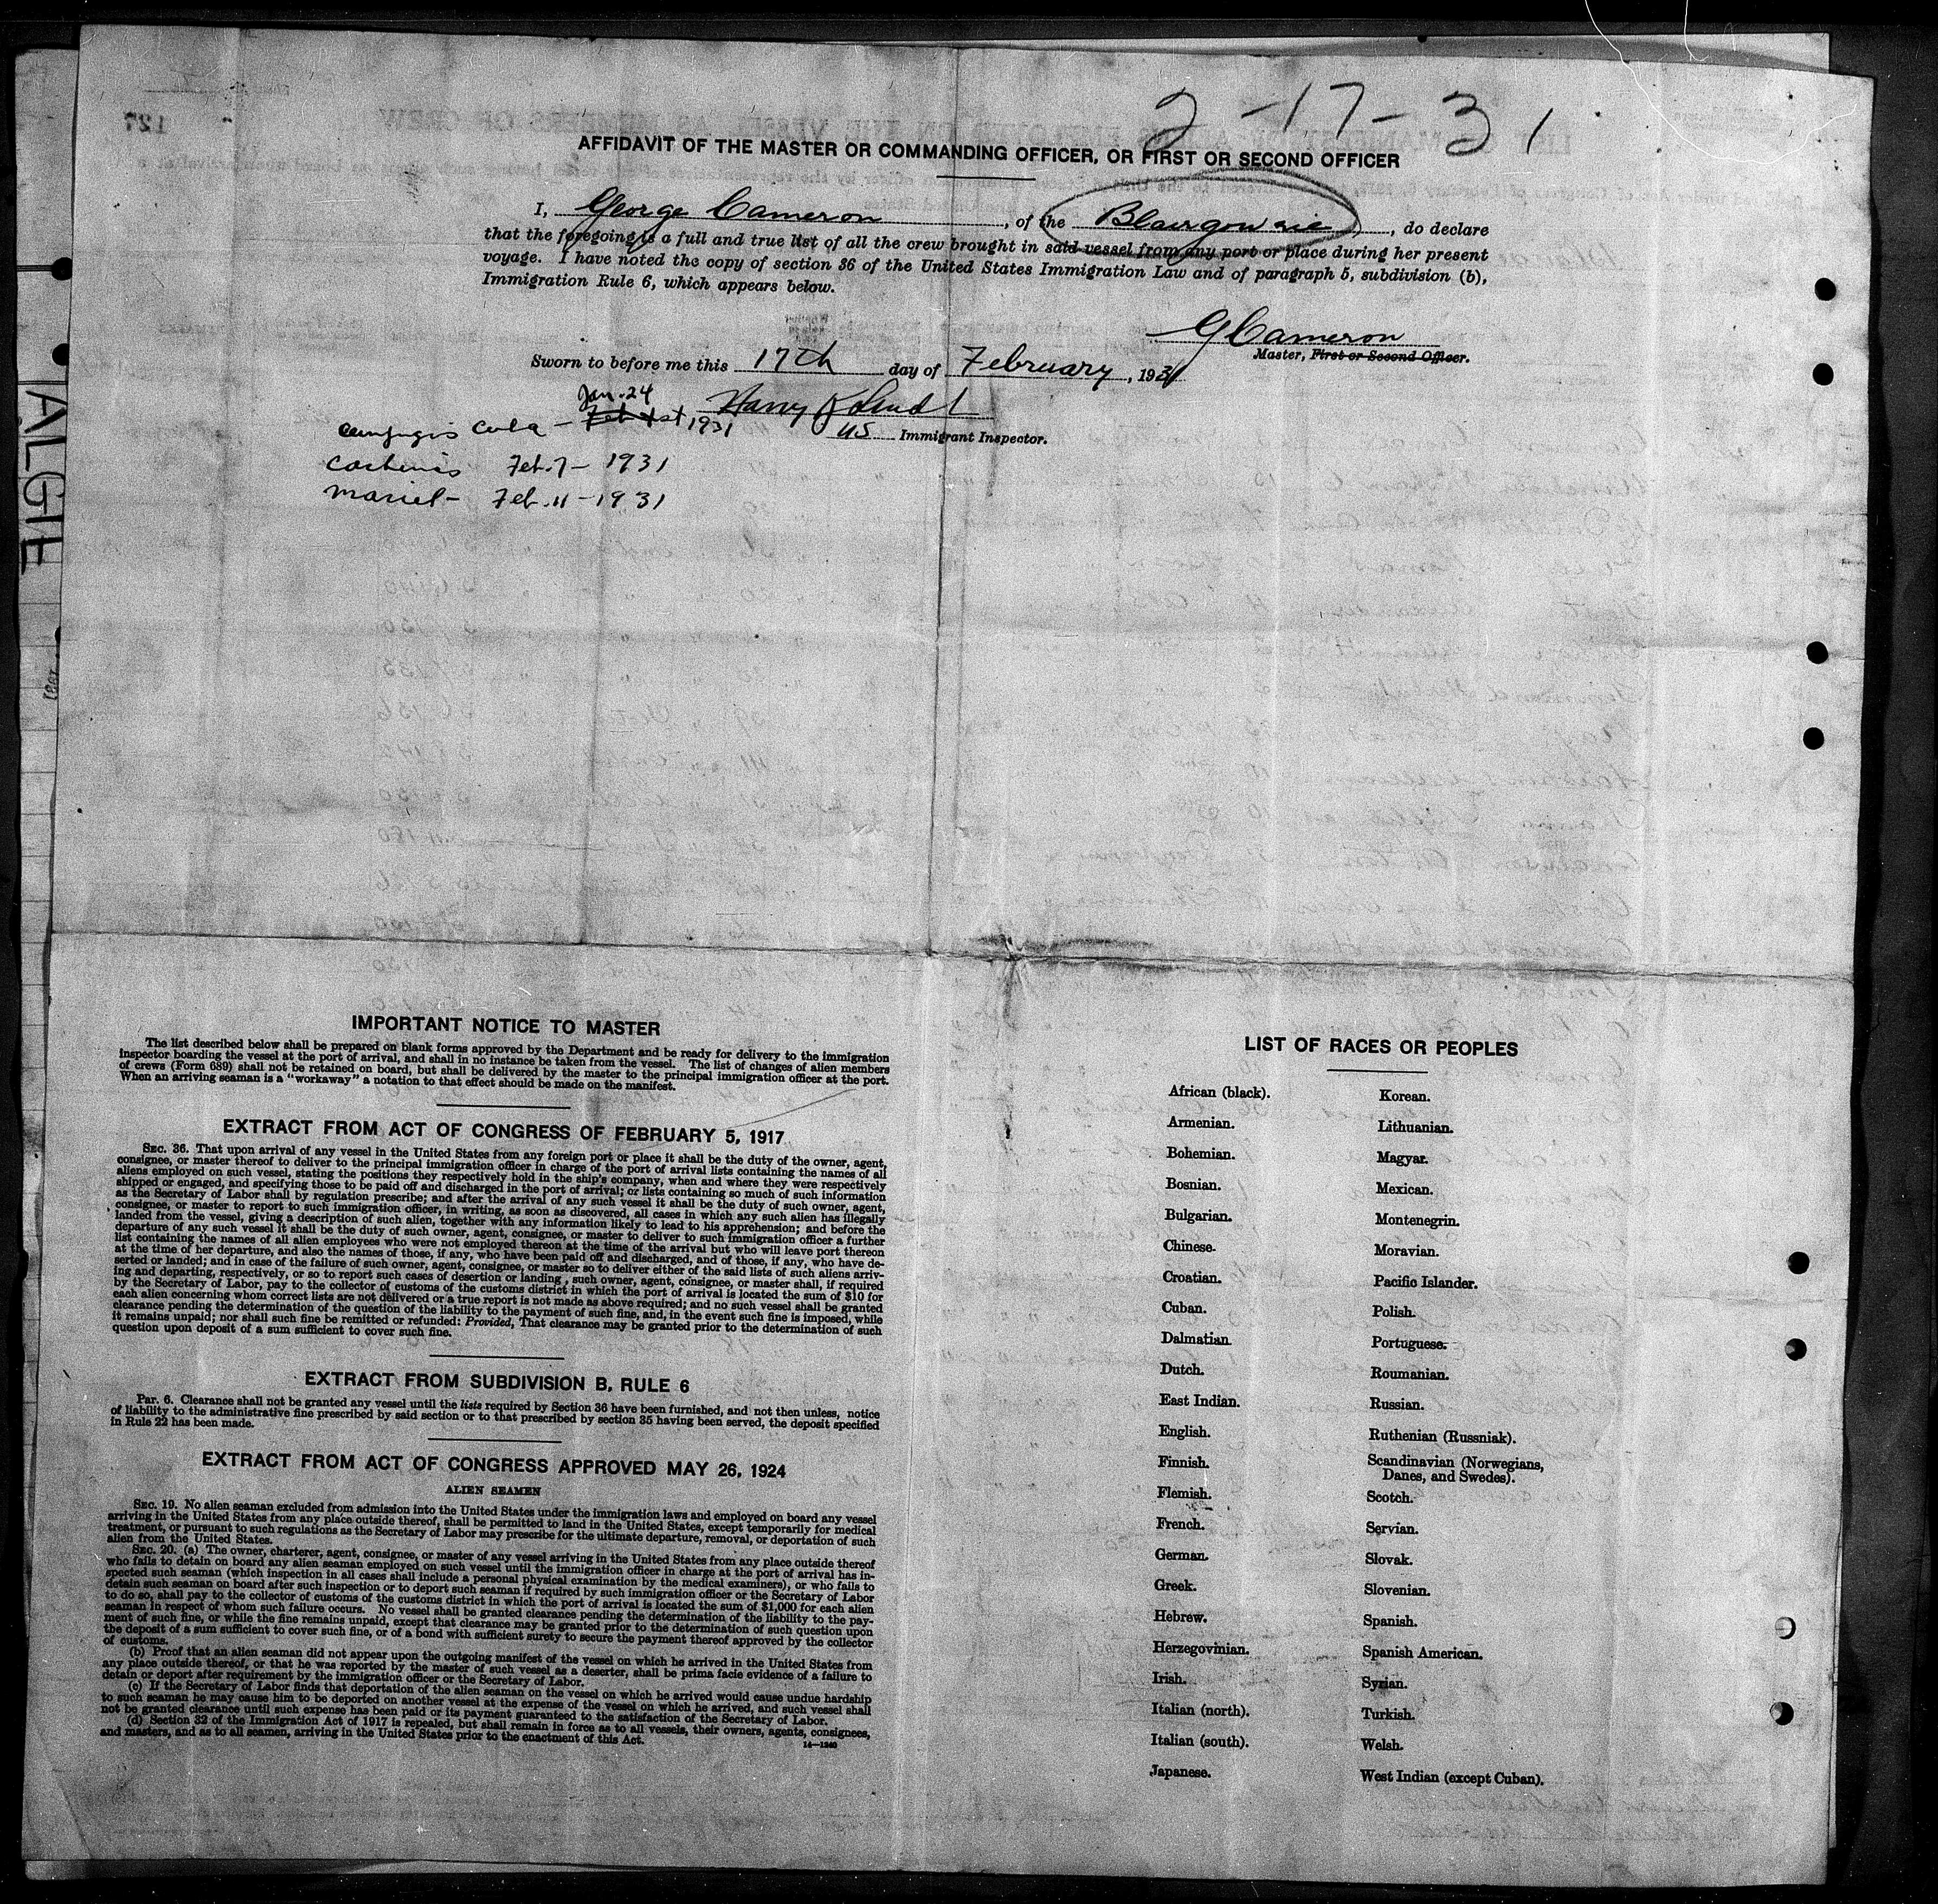 2-17-31
AFFIDAVIT OF THE MASTER OR COMMANDING OFFICER, OR FIRST OR SECOND OFFICER
I, George Cameron, of the Blairgowrie, do declare
that the foregoing is a full and true list of all the crew brought in said vessel from any port or place during her present
voyage. I have noted the copy of section 36 of the United States Immigration Law and of paragraph 5, subdivision (b),
Immigration Rule 6, which appears below.
G Cameron
Master, First or Second Officer.
Sworn to before me this 17th day of February, 1931
Jan. 24
Harry
Cuba - Feb 1st 1931
US Immigrant Inspector.
Feb. 7 - 1931
Mariel - Feb. 11 - 1931
ALGIE
127
IMPORTANT NOTICE TO MASTER
The list described below shall be prepared on blank forms approved by the Department and be ready for delivery to the immigration
inspector boarding the vessel at the port of arrival, and shall in no instance be taken from the vessel. The list of changes of alien members
of crews (Form 689) shall not be retained on board, but shall be delivered by the master to the principal immigration officer at the port.
When an arriving seaman is a "workaway" a notation to that effect should be made on the manifest.
EXTRACT FROM ACT OF CONGRESS OF FEBRUARY 5, 1917
SEC. 36. That upon arrival of any vessel in the United States from any foreign port or place it shall be the duty of the owner, agent,
consignee, or master thereof to deliver to the principal immigration officer in charge of the port of arrival lists containing the names of all
aliens employed on such vessel, stating the positions they respectively hold in the ship's company, when and where they were respectively
shipped or engaged, and specifying those to be paid off and discharged in the port of arrival; or lists containing so much of such information
as the Secretary of Labor shall by regulation prescribe; and after the arrival of any such vessel it shall be the duty of such owner, agent,
consignee, or master to report to such immigration officer, in writing, as soon as discovered, all cases in which any such alien has illegally
landed from the vessel, giving a description of such alien, together with any information likely to lead to his apprehension; and before the
departure of any such vessel it shall be the duty of such owner, agent, consignee, or master to deliver to such immigration officer a further
list containing the names of all alien employees who were not employed thereon at the time of the arrival but who will leave port thereon
at the time of her departure, and also the names of those, if any, who have been paid off and discharged, and of those, if any, who have de-
serted or landed; and in case of the failure of such owner, agent, consignee, or master so to deliver either of the said lists of such aliens arriv-
ing and departing, respectively, or so to report such cases of desertion or landing, such owner, agent, consignee, or master shall, if required
by the Secretary of Labor, pay to the collector of customs of the customs district in which the port of arrival is located the sum of $10 for
each alien concerning whom correct lists are not delivered or a true report is not made as above required; and no such vessel shall be granted
clearance pending the determination of the question of the liability to the payment of such fine, and, in the event such fine is imposed, while
it remains unpaid; nor shall such fine be remitted or refunded: Provided, That clearance may be granted prior to the determination of such
question upon deposit of a sum sufficient to cover such fine.
EXTRACT FROM SUBDIVISION B, RULE 6
Par. 6. Clearance shall not be granted any vessel until the lists required by Section 36 have been furnished, and not then unless, notice
of liability to the administrative fine prescribed by said section or to that prescribed by section 35 having been served, the deposit specified
in Rule 22 has been made.
EXTRACT FROM ACT OF CONGRESS APPROVED MAY 26, 1924
ALIEN SEAMEN
SEC. 19. No alien seaman excluded from admission into the United States under the immigration laws and employed on board any vessel
arriving in the United States from any place outside thereof, shall be permitted to land in the United States, except temporarily for medical
treatment, or pursuant to such regulations as the Secretary of Labor may prescribe for the ultimate departure, removal, or deportation of such
alien from the United States.
SEC. 20. (a) The owner, charterer, agent, consignee, or master of any vessel arriving in the United States from any place outside thereof
who fails to detain on board any alien seaman employed on such vessel until the immigration officer in charge at the port of arrival has in-
spected such seaman (which inspection in all cases shall include a personal physical examination by the medical examiners), or who fails to
detain such seaman on board after such inspection or to deport such seaman if required by such immigration officer or the Secretary of Labor
to do so, shall pay to the collector of customs of the customs district in which the port of arrival is located the sum of $1,000 for each alien
seaman in respect of whom such failure occurs. No vessel shall be granted clearance pending the determination of the liability to the pay-
ment of such fine, or while the fine remains unpaid, except that clearance may be granted prior to the determination of such question upon
the deposit of a sum sufficient to cover such fine, or of a bond with sufficient surety to secure the payment thereof approved by the collector
of customs.
(b) Proof that an alien seaman did not appear upon the outgoing manifest of the vessel on which he arrived in the United States from
any place outside thereof, or that he was reported by the master of such vessel as a deserter, shall be prima facie evidence of a failure to
detain or deport after requirement by the immigration officer or the Secretary of Labor.
(c) If the Secretary of Labor finds that deportation of the alien seaman on the vessel on which he arrived would cause undue hardship
to such seaman he may cause him to be deported on another vessel at the expense of the vessel on which he arrived, and such vessel shall
not be granted clearance until such expense has been paid or its payment guaranteed to the satisfaction of the Secretary of Labor.
(d) Section 32 of the Immigration Act of 1917 is repealed, but shall remain in force as to all vessels, their owners, agents, consignees,
and masters, and as to all seamen, arriving in the United States prior to the enactment of this Act.
14—1240
LIST OF RACES OR PEOPLES
African (black).
Armenian.
Bohemian.
Bosnian.
Bulgarian.
Chinese.
Croatian.
Cuban.
Dalmatian
Dutch.
East Indian.
English.
Finnish.
Flemish.
French.
German.
Greek.
Hebrew.
Herzegovinian.
Irish.
Italian (north).
Italian (south).
Japanese.
Korean.
Lithuanian.
Magyar.
Mexican.
Montenegrin.
Moravian.
Pacific Islander.
Polish.
Portuguese.
Roumanian.
Russian.
Ruthenian (Russniak).
Scandinavian (Norwegians,
Danes, and Swedes).
Scotch.
Servian.
Slovak.
Slovenian.
Spanish.
Spanish American.
Syrian.
Turkish.
Welsh.
West Indian (except Cuban).